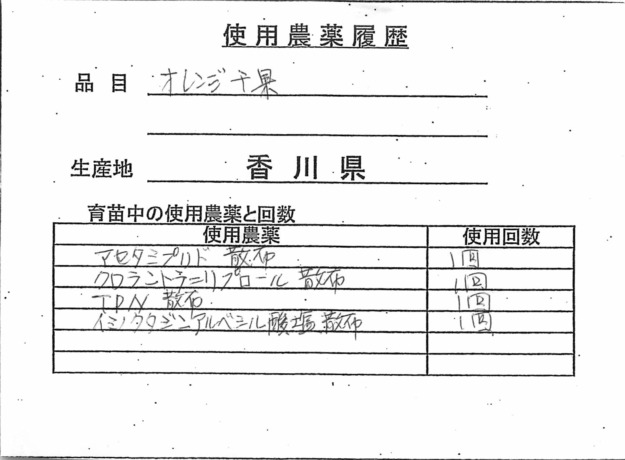 使用農薬履歴
品目 オレンジ千果
生産地 香川県
育苗中の使用農薬と回数
使用農薬 使用回数
アセタミプリド 散布 1回
クロラントラニリプロール 散布 1回
TPN 散布 1回
イミノクタジンアルベシル酸塩 散布 1回